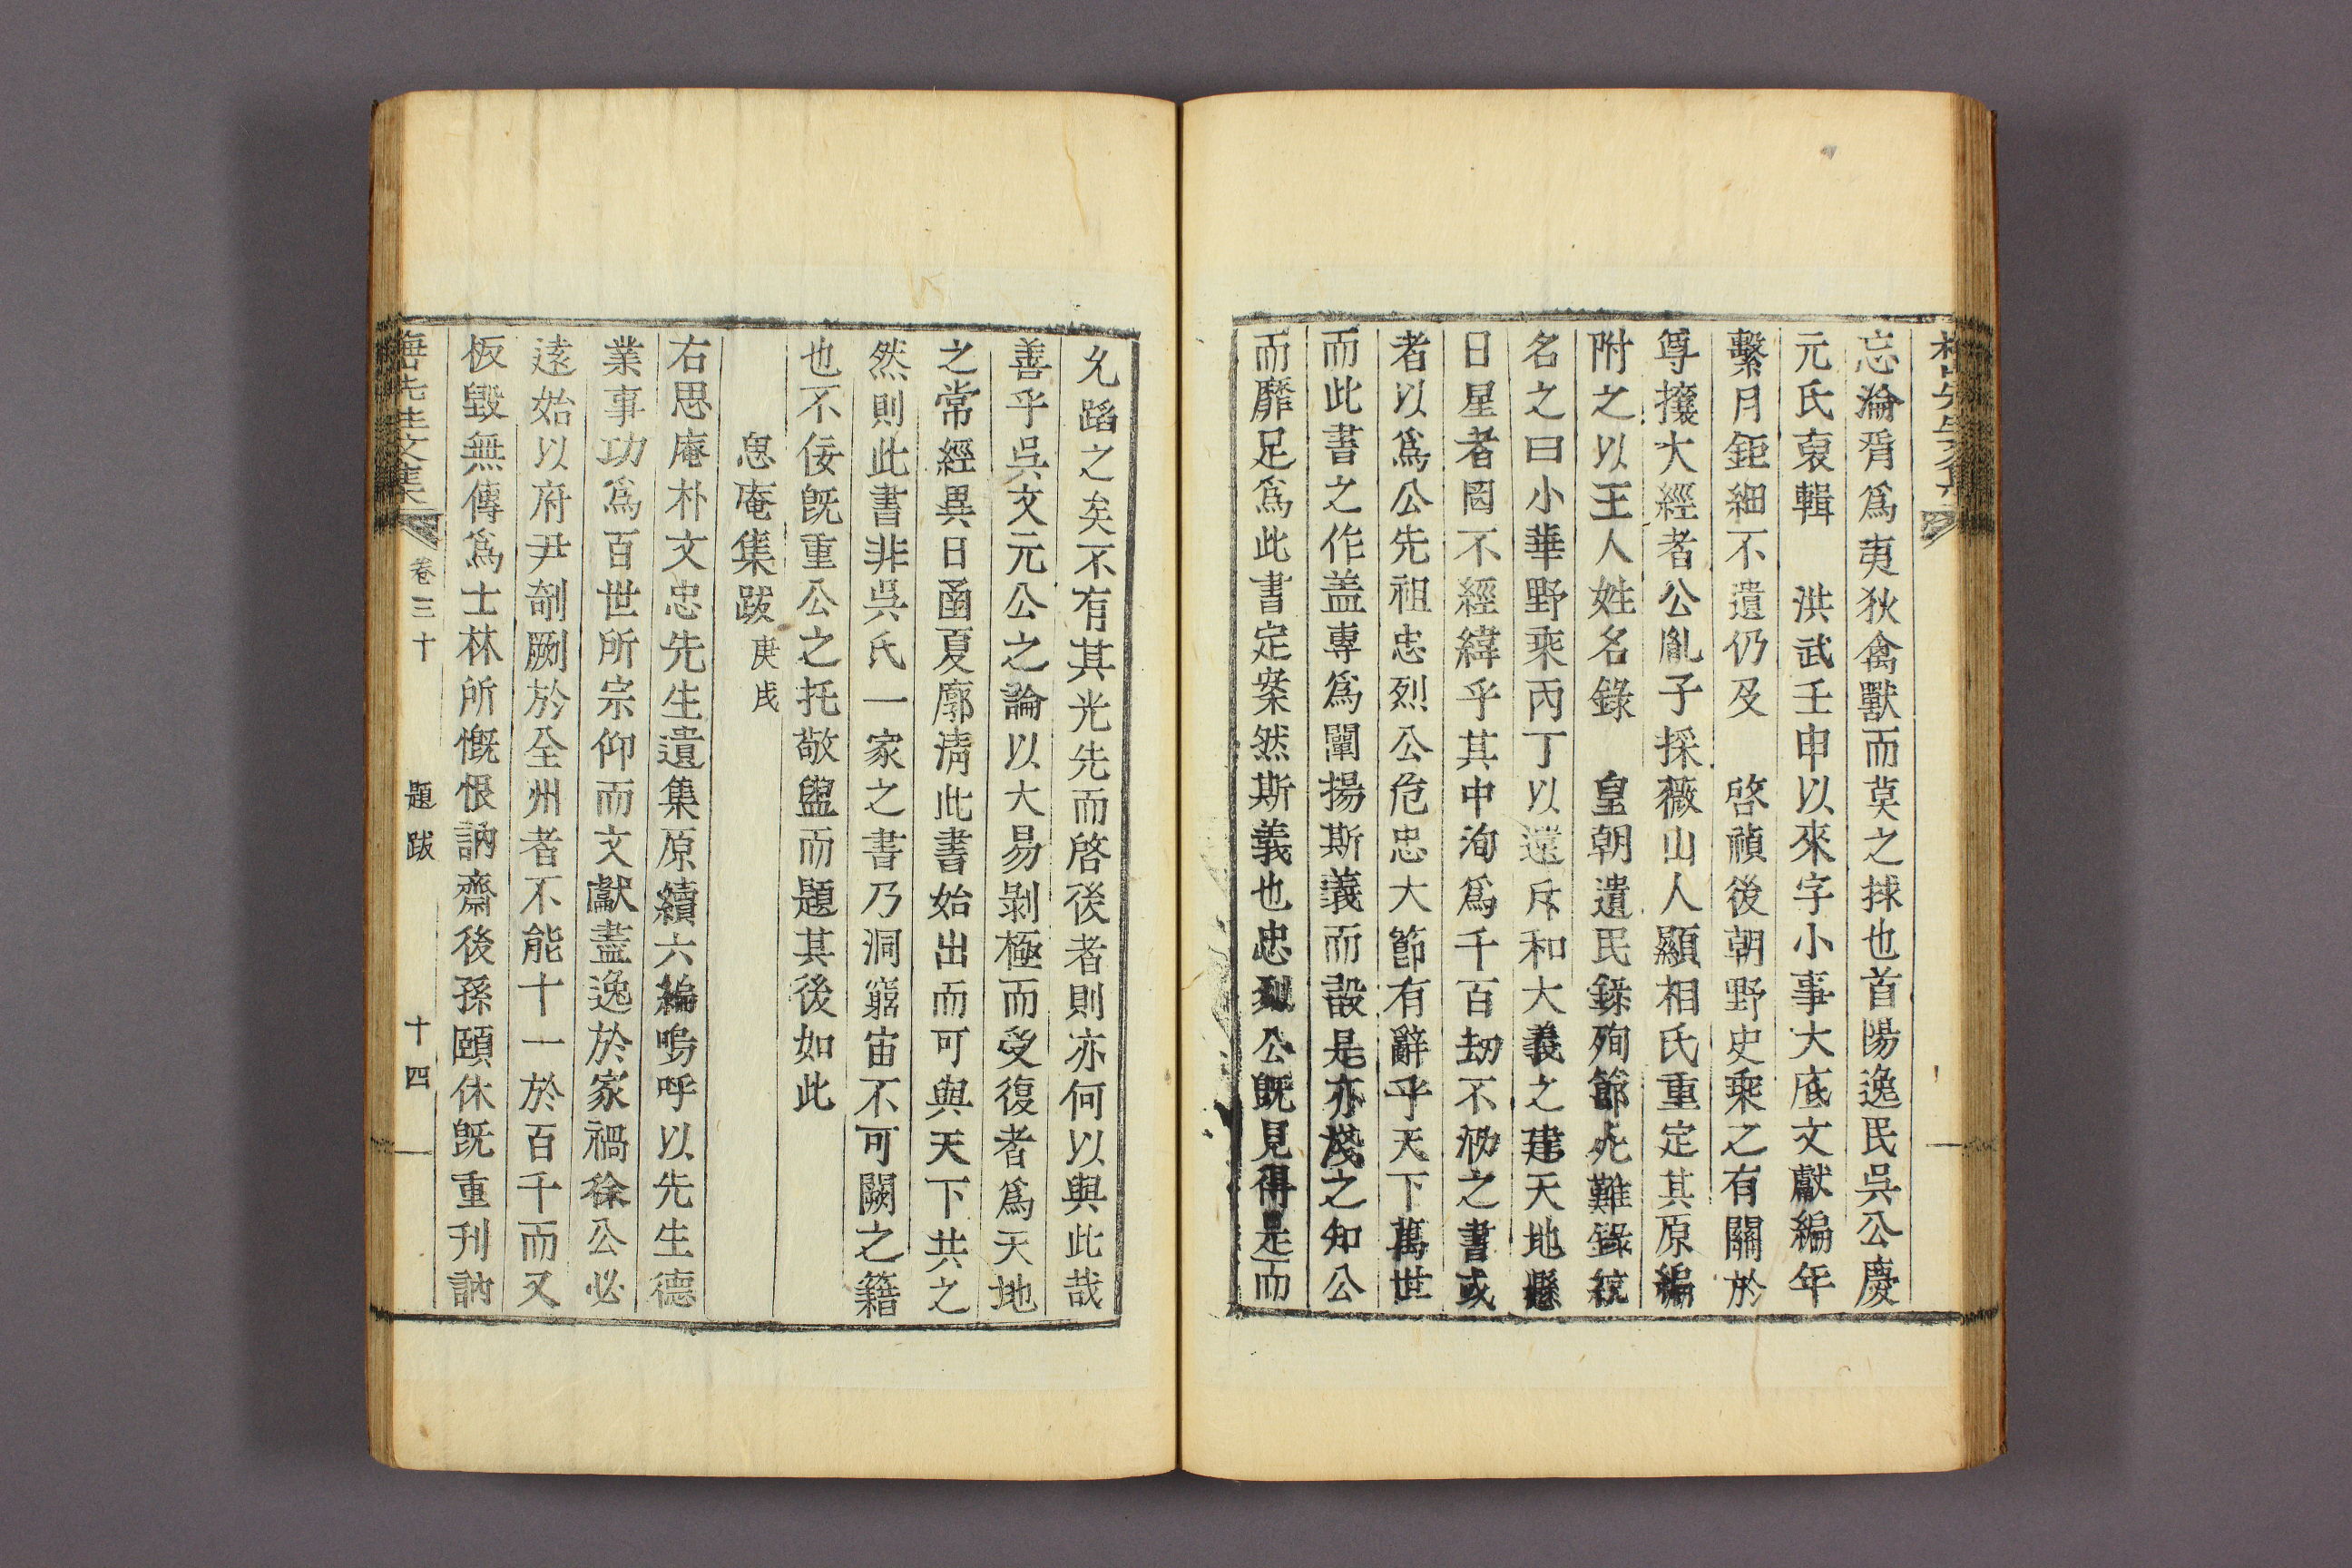 忘淪胥爲夷狄禽獸而莫之捄也首陽逸民吳公慶
元氏裒輯 洪武壬申以來字小事大底文獻編年
繫月鉅細不遺仍及 啓禎後朝野史乘之有關於
尊攘大經者公胤子採薇山人顯相氏重定其原編
附之以王人姓名錄 皇朝遺民錄殉節死難錄統
名之曰小華野乘丙丁以還斥和大義之建天地懸
日星者罔不經緯乎其中洵爲千百劫不泐之書或
者以爲公先祖忠烈公危忠大節有辭乎天下萬世
而此書之作盖專爲闡揚斯義而設是亦淺之知公
而靡足爲此書定案然斯義也忠烈公旣見得是而
允蹈之矣不有其光先而啓後者則亦何以與此哉
善乎吳文元公之論以大易剝極而受復者爲天地
之常經異日函夏廓淸此書始出而可與天下共之
然則此書非吳氏一家之書乃洞窮宙不可闕之籍
也不佞旣重公之托敬盥而題其後如此
思庵集跋 庚戌
右思庵朴文忠先生遺集原續六編嗚呼以先生德
業事功爲百世所宗仰而文獻盡逸於家禍徐公必
遠始以府尹剞劂於全州者不能十一於百千而又
板毁無傳爲士林所慨恨訥齋後孫頤休旣重刊訥
先生文集 卷三十 題跋 十四